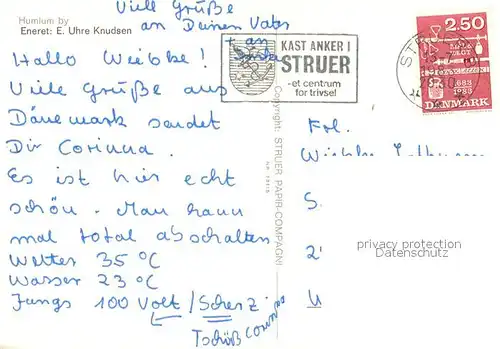 Viele Grüße
an Deinen Vater
+ an
Humlum by
Eneret: E. Uhre Knudsen
Hallo Wiebke!
Viele Grüße aus
Dänemark sendet
Dir Corinna.
Es ist hier echt
schön. Man kann
mal total abschalten
Wetter 35 °C
Wasser 23 °C
Jungs 100 Volt / Scherz
Tschüß Corinna
KAST ANKER I
STRUER
-et centrum
for trivsel
Copyright: STRUER PAPIR-COMPAGNI
2.50
1683
1983
DANMARK
Frl.
Wiebke
S
2'
privacy protection
Datenschutz